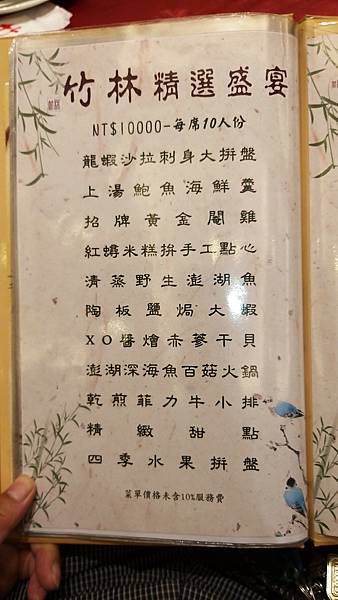 竹林精選盛宴
NT$10000-每席10人份
龍蝦沙拉刺身大拼盤
上湯鮑魚海鮮羹
招牌黃金閹雞
紅蟳米糕拚手工點心
清蒸野生澎湖魚
陶板鹽焗大蝦
XO醬燴赤蔘干貝
澎湖深海魚百菇火鍋
乾煎菲力牛小排
精緻甜點
四季水果拼盤
菜單價格未含10%服務費